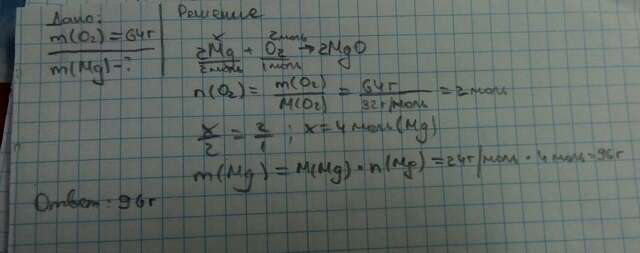 Дано:
m(O₂) = 64г
m(Mg) - ?
Решение
x 2моль
2Mg + O₂ → 2MgO
2моль 1моль
n(O₂) = m(O₂)/M(O₂) = 64г/32г/моль = 2моль
x/2 = 2/1 ; x = 4 моль (Mg)
m(Mg) = M(Mg) · n(Mg) = 24г/моль · 4 моль = 96г
Ответ: 96г